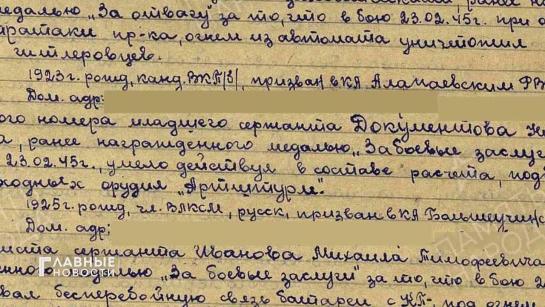 медалью „За отвагу" за то, что в бою 23.02.45г. при о
пр-ка, огнем из автомата уничтожил
гитлеровцев.
1923г. рожд, канд. ВКП/б/, призван в КА Алапаевским РВ
Дом. адр:
ого номера младшего сержанта Документова
а, ранее награжденного медалью „За боевые заслуг
23.02.45г., умело действуя в составе расчета, под
ходных орудия „Артштурм".
1925г. рожд, чл. ВЛКСМ, русск, призван в КА
Дом. адр:
иста сержанта Иванова Михаила Тимофеевича
медалью „За боевые заслуги" за то, что в бою 2
вал бесперебойную связь батареи с НП, под огнем
ГЛАВНЫЕ
НОВОСТИ